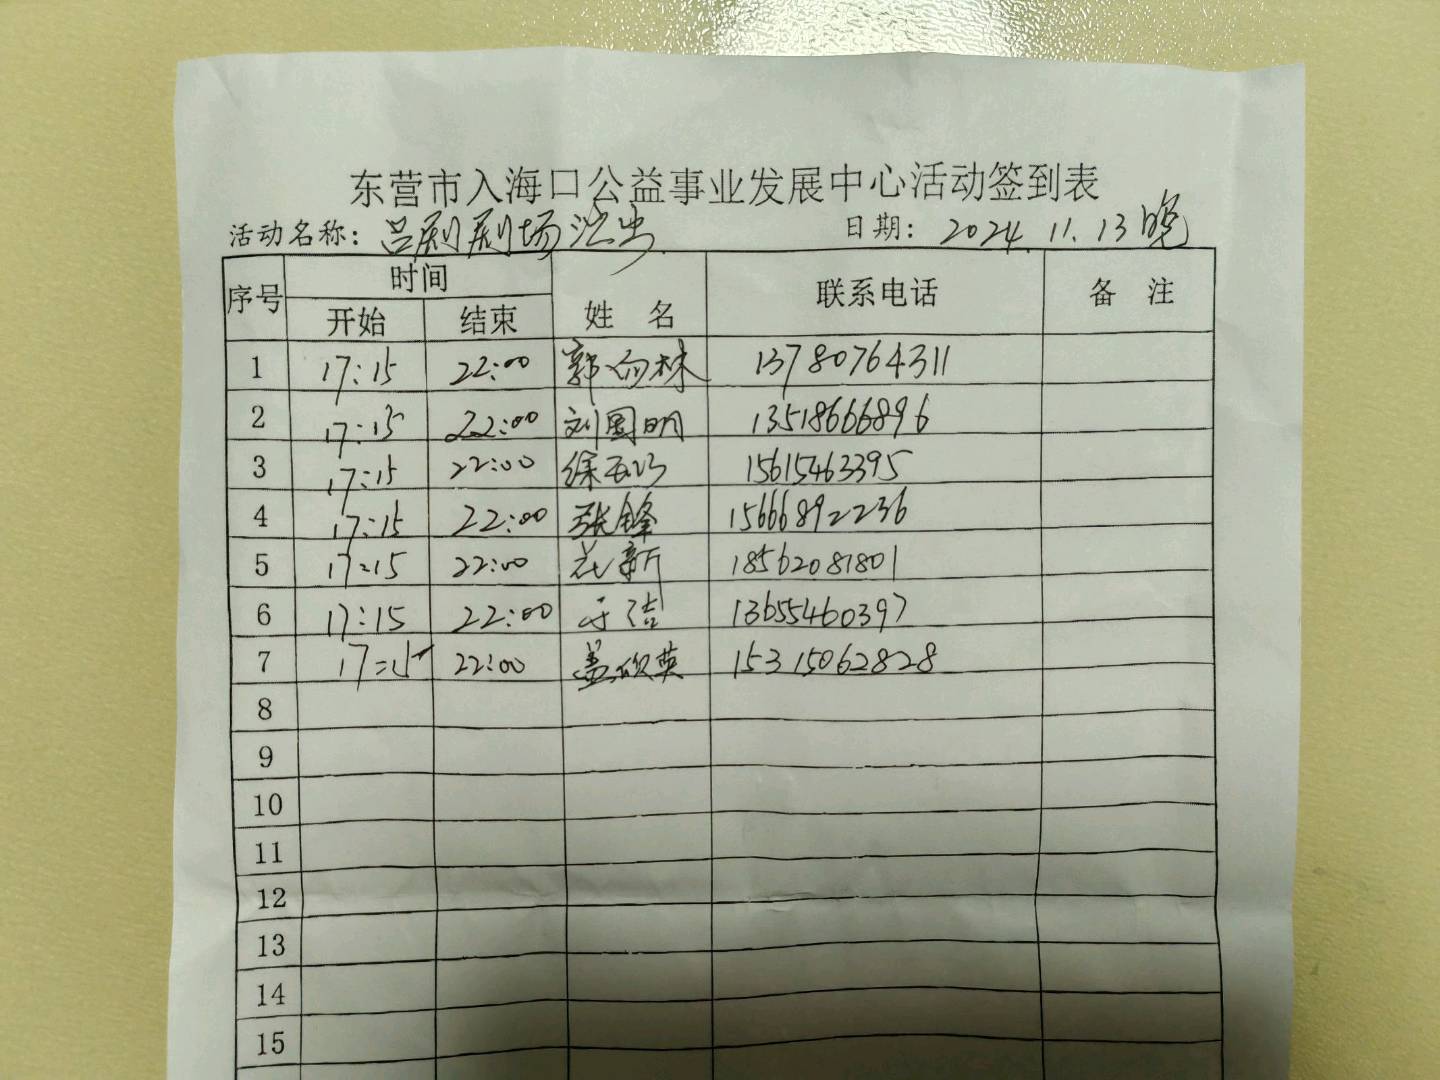 东营市入海口公益事业发展中心活动签到表
活动名称：吕剧剧场演出 日期：2024.11.13晚
序号 时间 姓名 联系电话 备注
开始 结束
1 17:15 22:00 郭向林 13780764311
2 17:15 22:00 刘国明 13518666896
3 17:15 22:00 徐 15615463395
4 17:15 22:00 张锋 15666892236
5 17:15 22:00 花新 18562081801
6 17:15 22:00 于洁 13655460397
7 17:15 22:00 盖欣英 15315062828
8
9
10
11
12
13
14
15